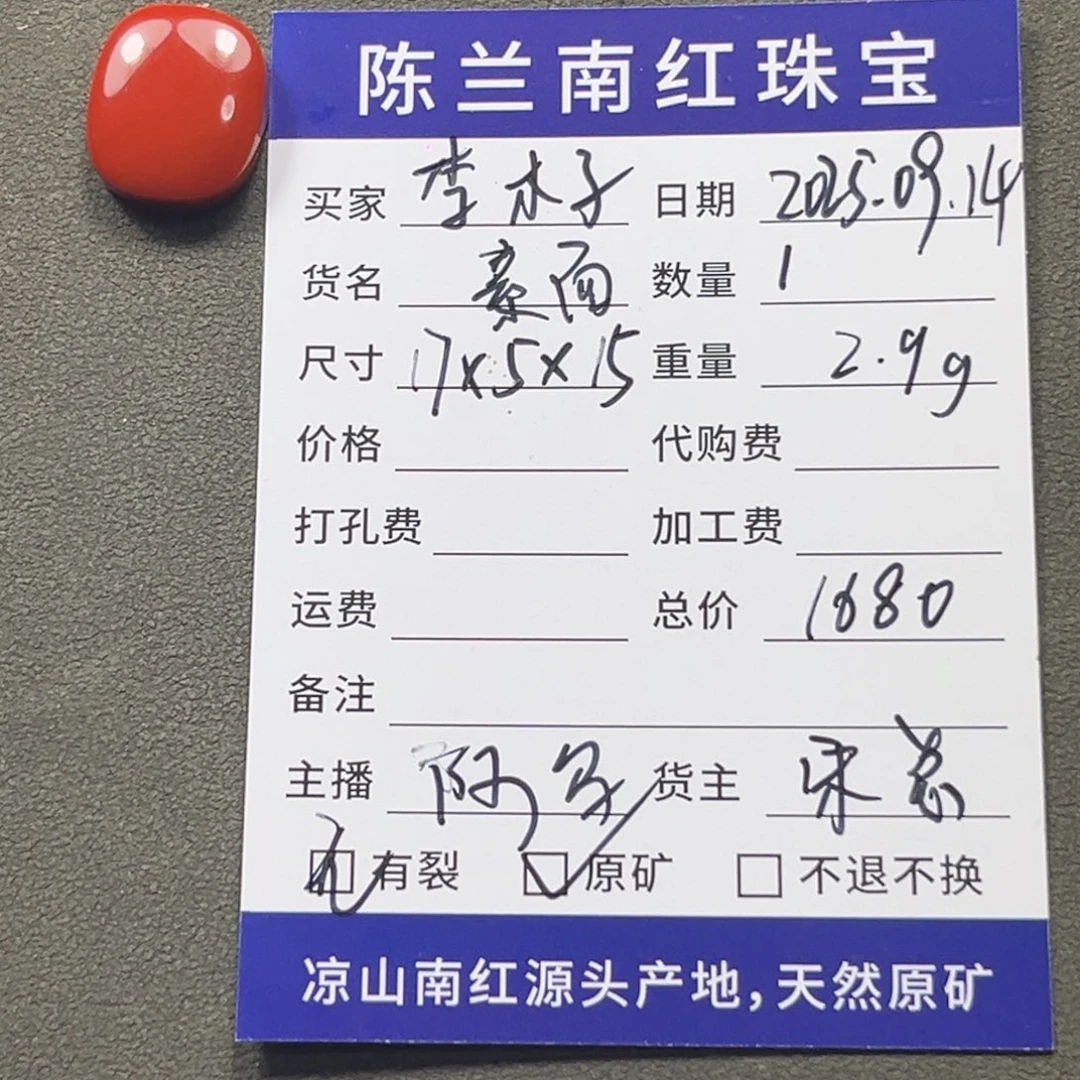 陈兰南红珠宝
买家 李木子 日期 2025.09.14
货名 素面 数量 1
尺寸 17x5x15 重量 2.9g
价格 代购费
打孔费 加工费
运费 总价 1680
备注
主播 阿 货主 宋总
无 有裂 ✓ 原矿 □ 不退不换
凉山南红源头产地,天然原矿